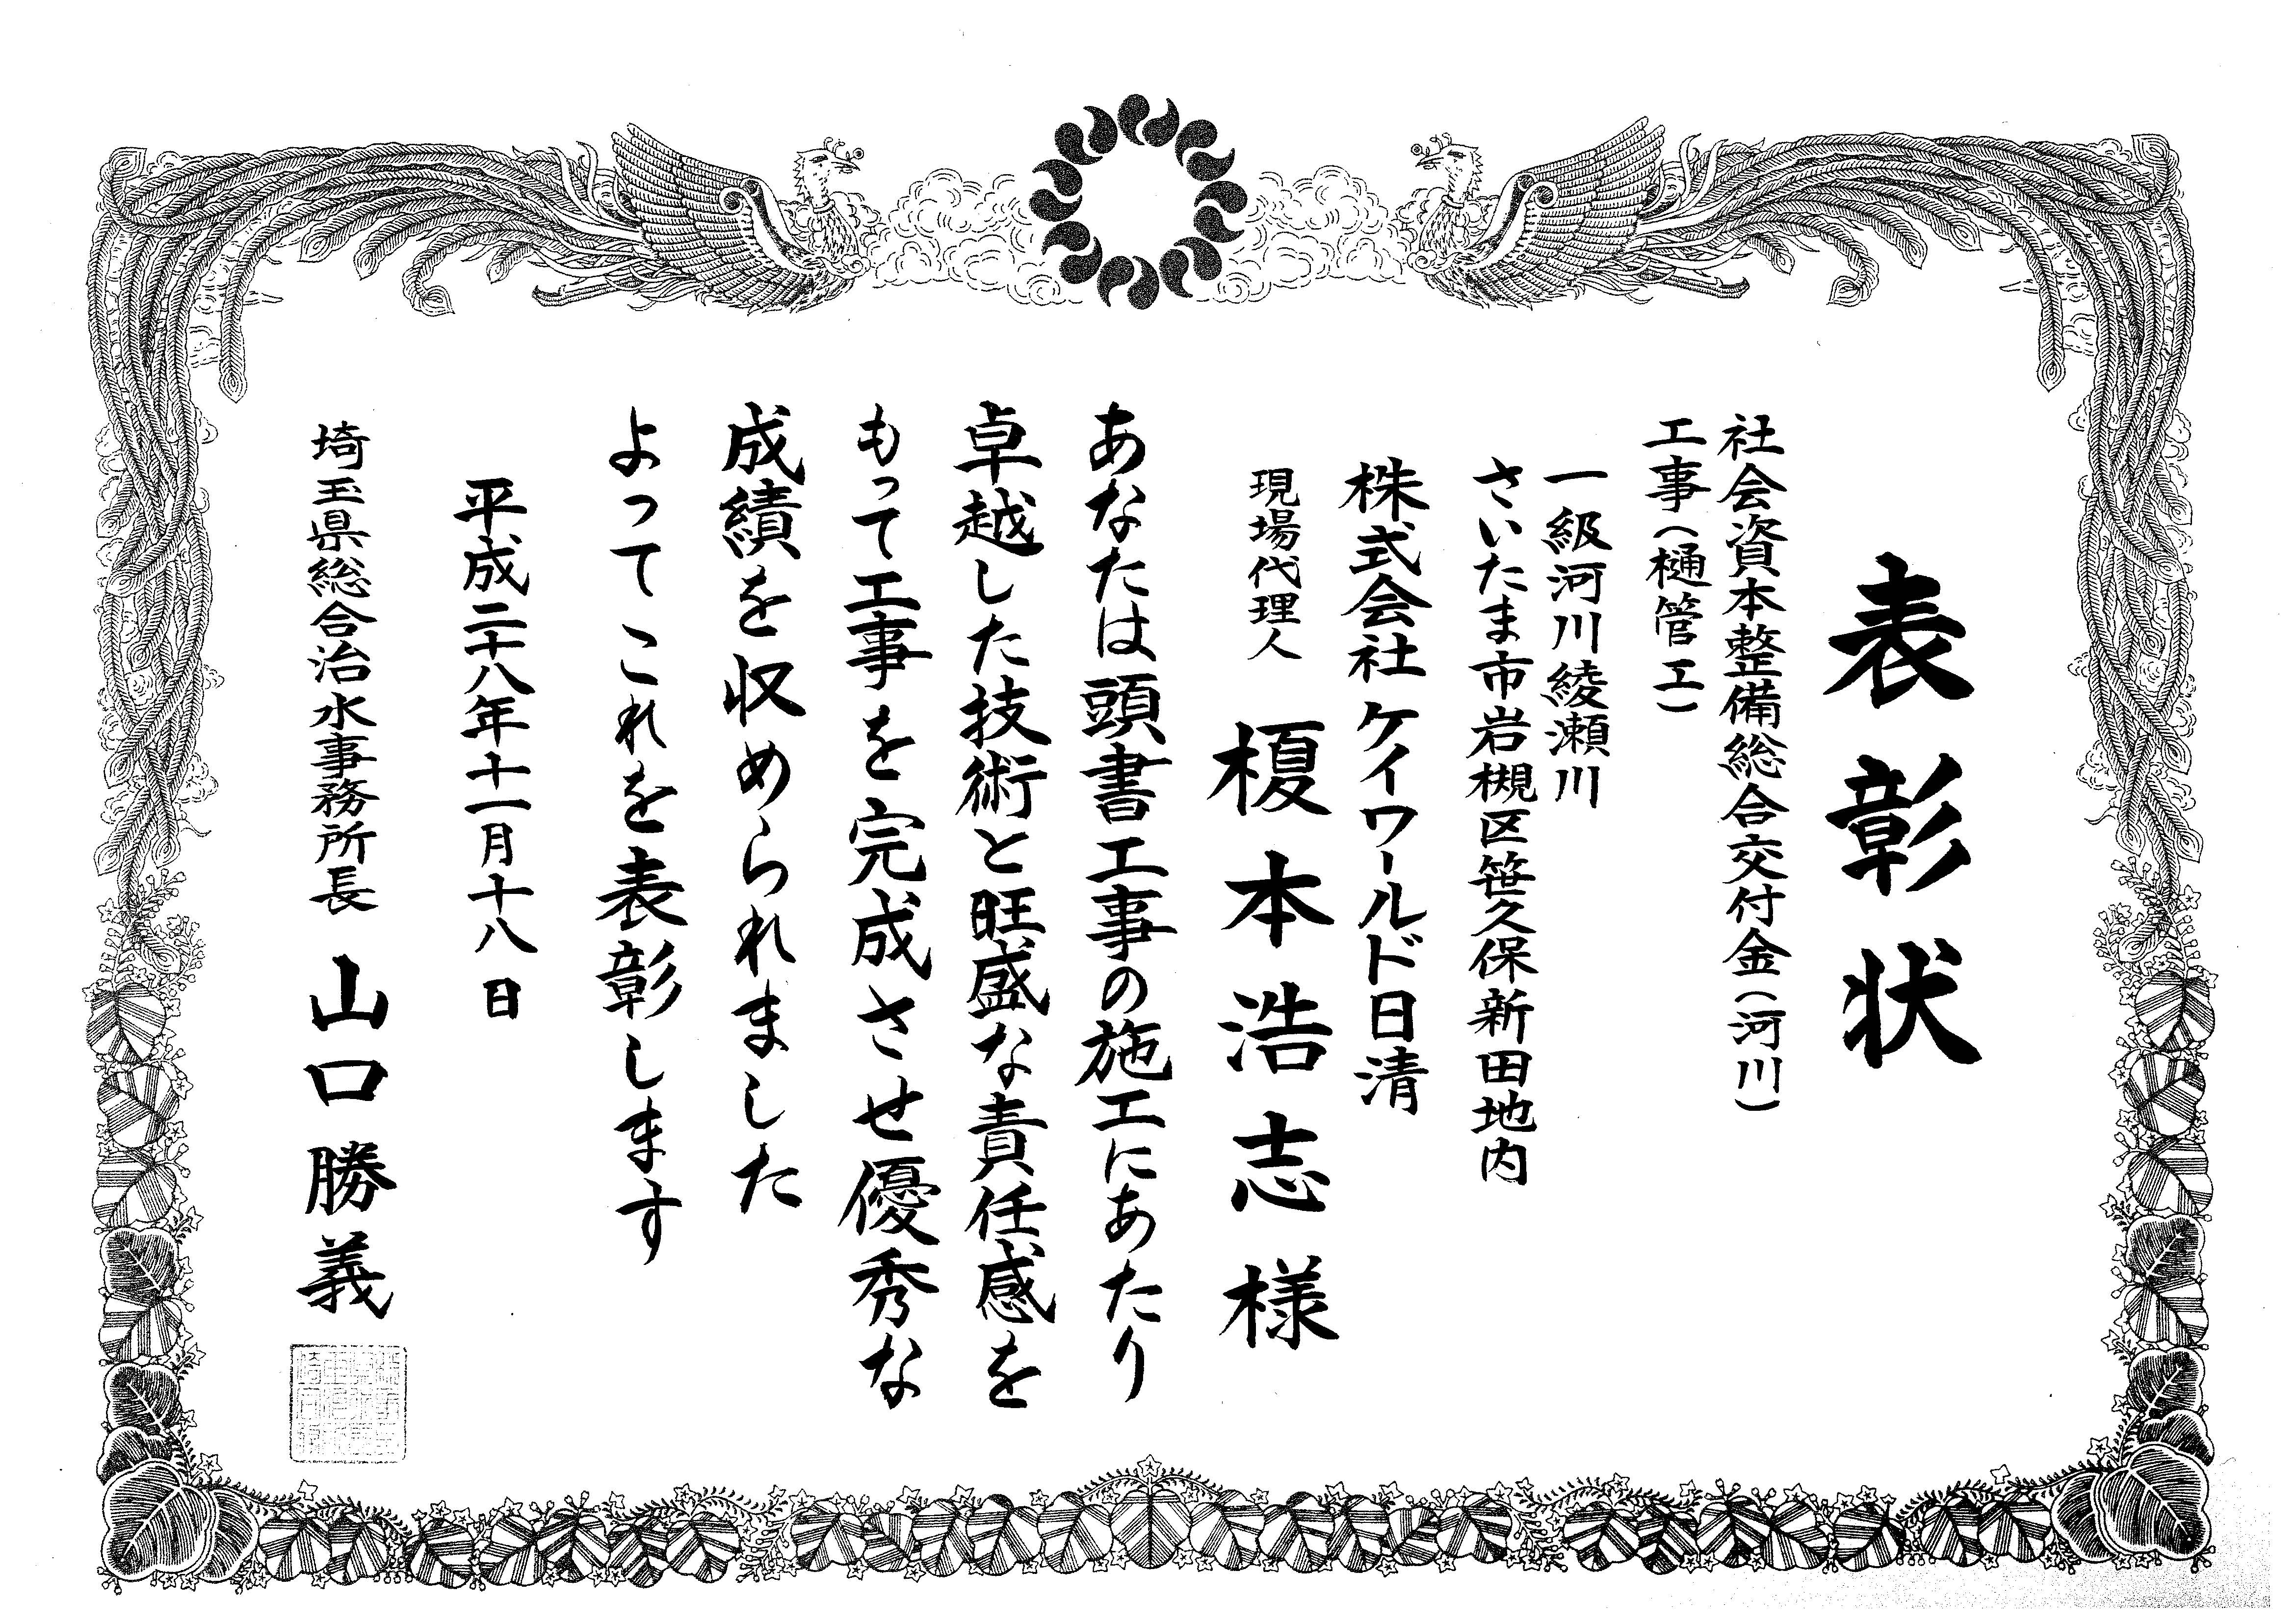 表彰状
社会資本整備総合交付金(河川)
工事(樋管工)
一級河川綾瀬川
さいたま市岩槻区笹久保新田地内
株式会社ケイワールド日清
現場代理人 榎本浩志様
あなたは頭書工事の施工にあたり
卓越した技術と旺盛な責任感を
もって工事を完成させ優秀な
成績を収められました
よってこれを表彰します
平成二十八年十一月十八日
埼玉県総合治水事務所長 山口勝義